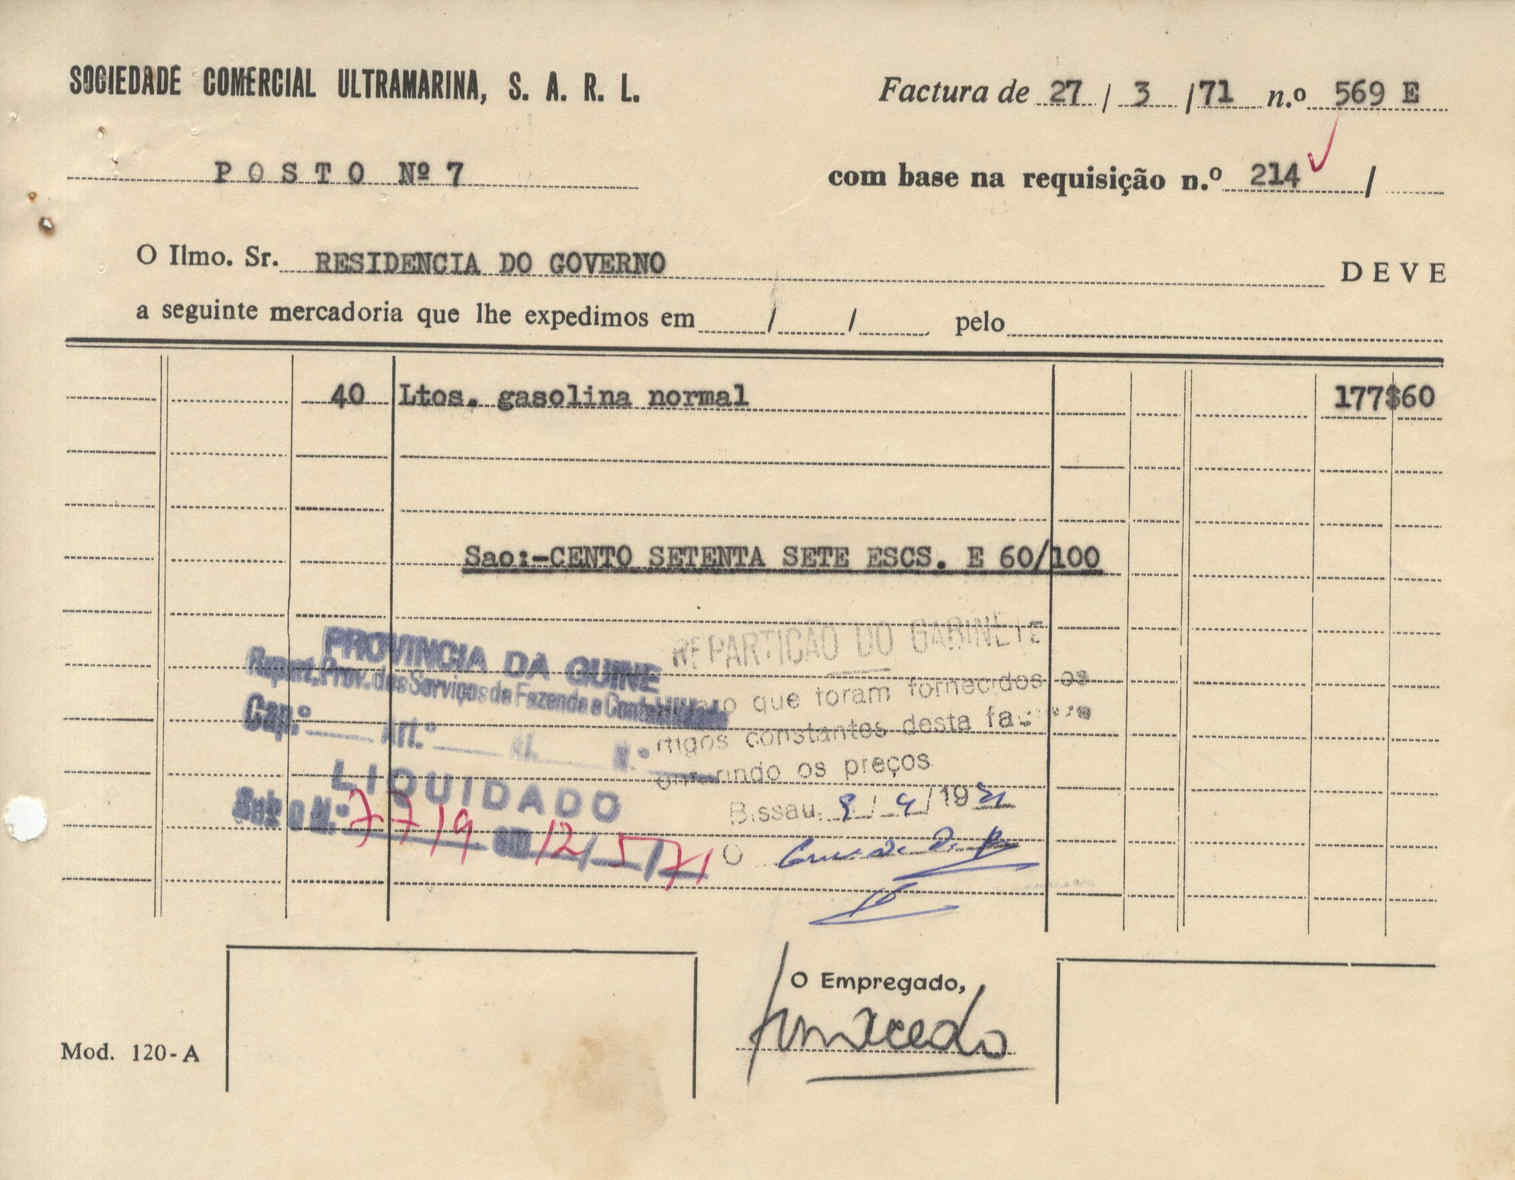 SOCIEDADE COMERCIAL ULTRAMARINA, S. A. R. L.
Factura de 27 / 3 / 71 n.º 569 E
POSTO Nº 7
com base na requisição n.º 214 /
O Ilmo. Sr. RESIDENCIA DO GOVERNO DEVE
a seguinte mercadoria que lhe expedimos em / / pelo
40 Ltos. gasolina normal 177$60
Sao:-CENTO SETENTA SETE ESCS. E 60/100
PROVINCIA DA GUINE
Repart. Prov. dos Serviços de Fazenda e Contabilidade
Cap.º Art.º Al. N.º
LIQUIDADO
Sub o N.º 7719 em 12/5/71
REPARTIÇÃO DO GABINETE
que foram fornecidos os
constantes desta
os preços
Bissau, 8/4/1971
O
O Empregado,
Mod. 120-A